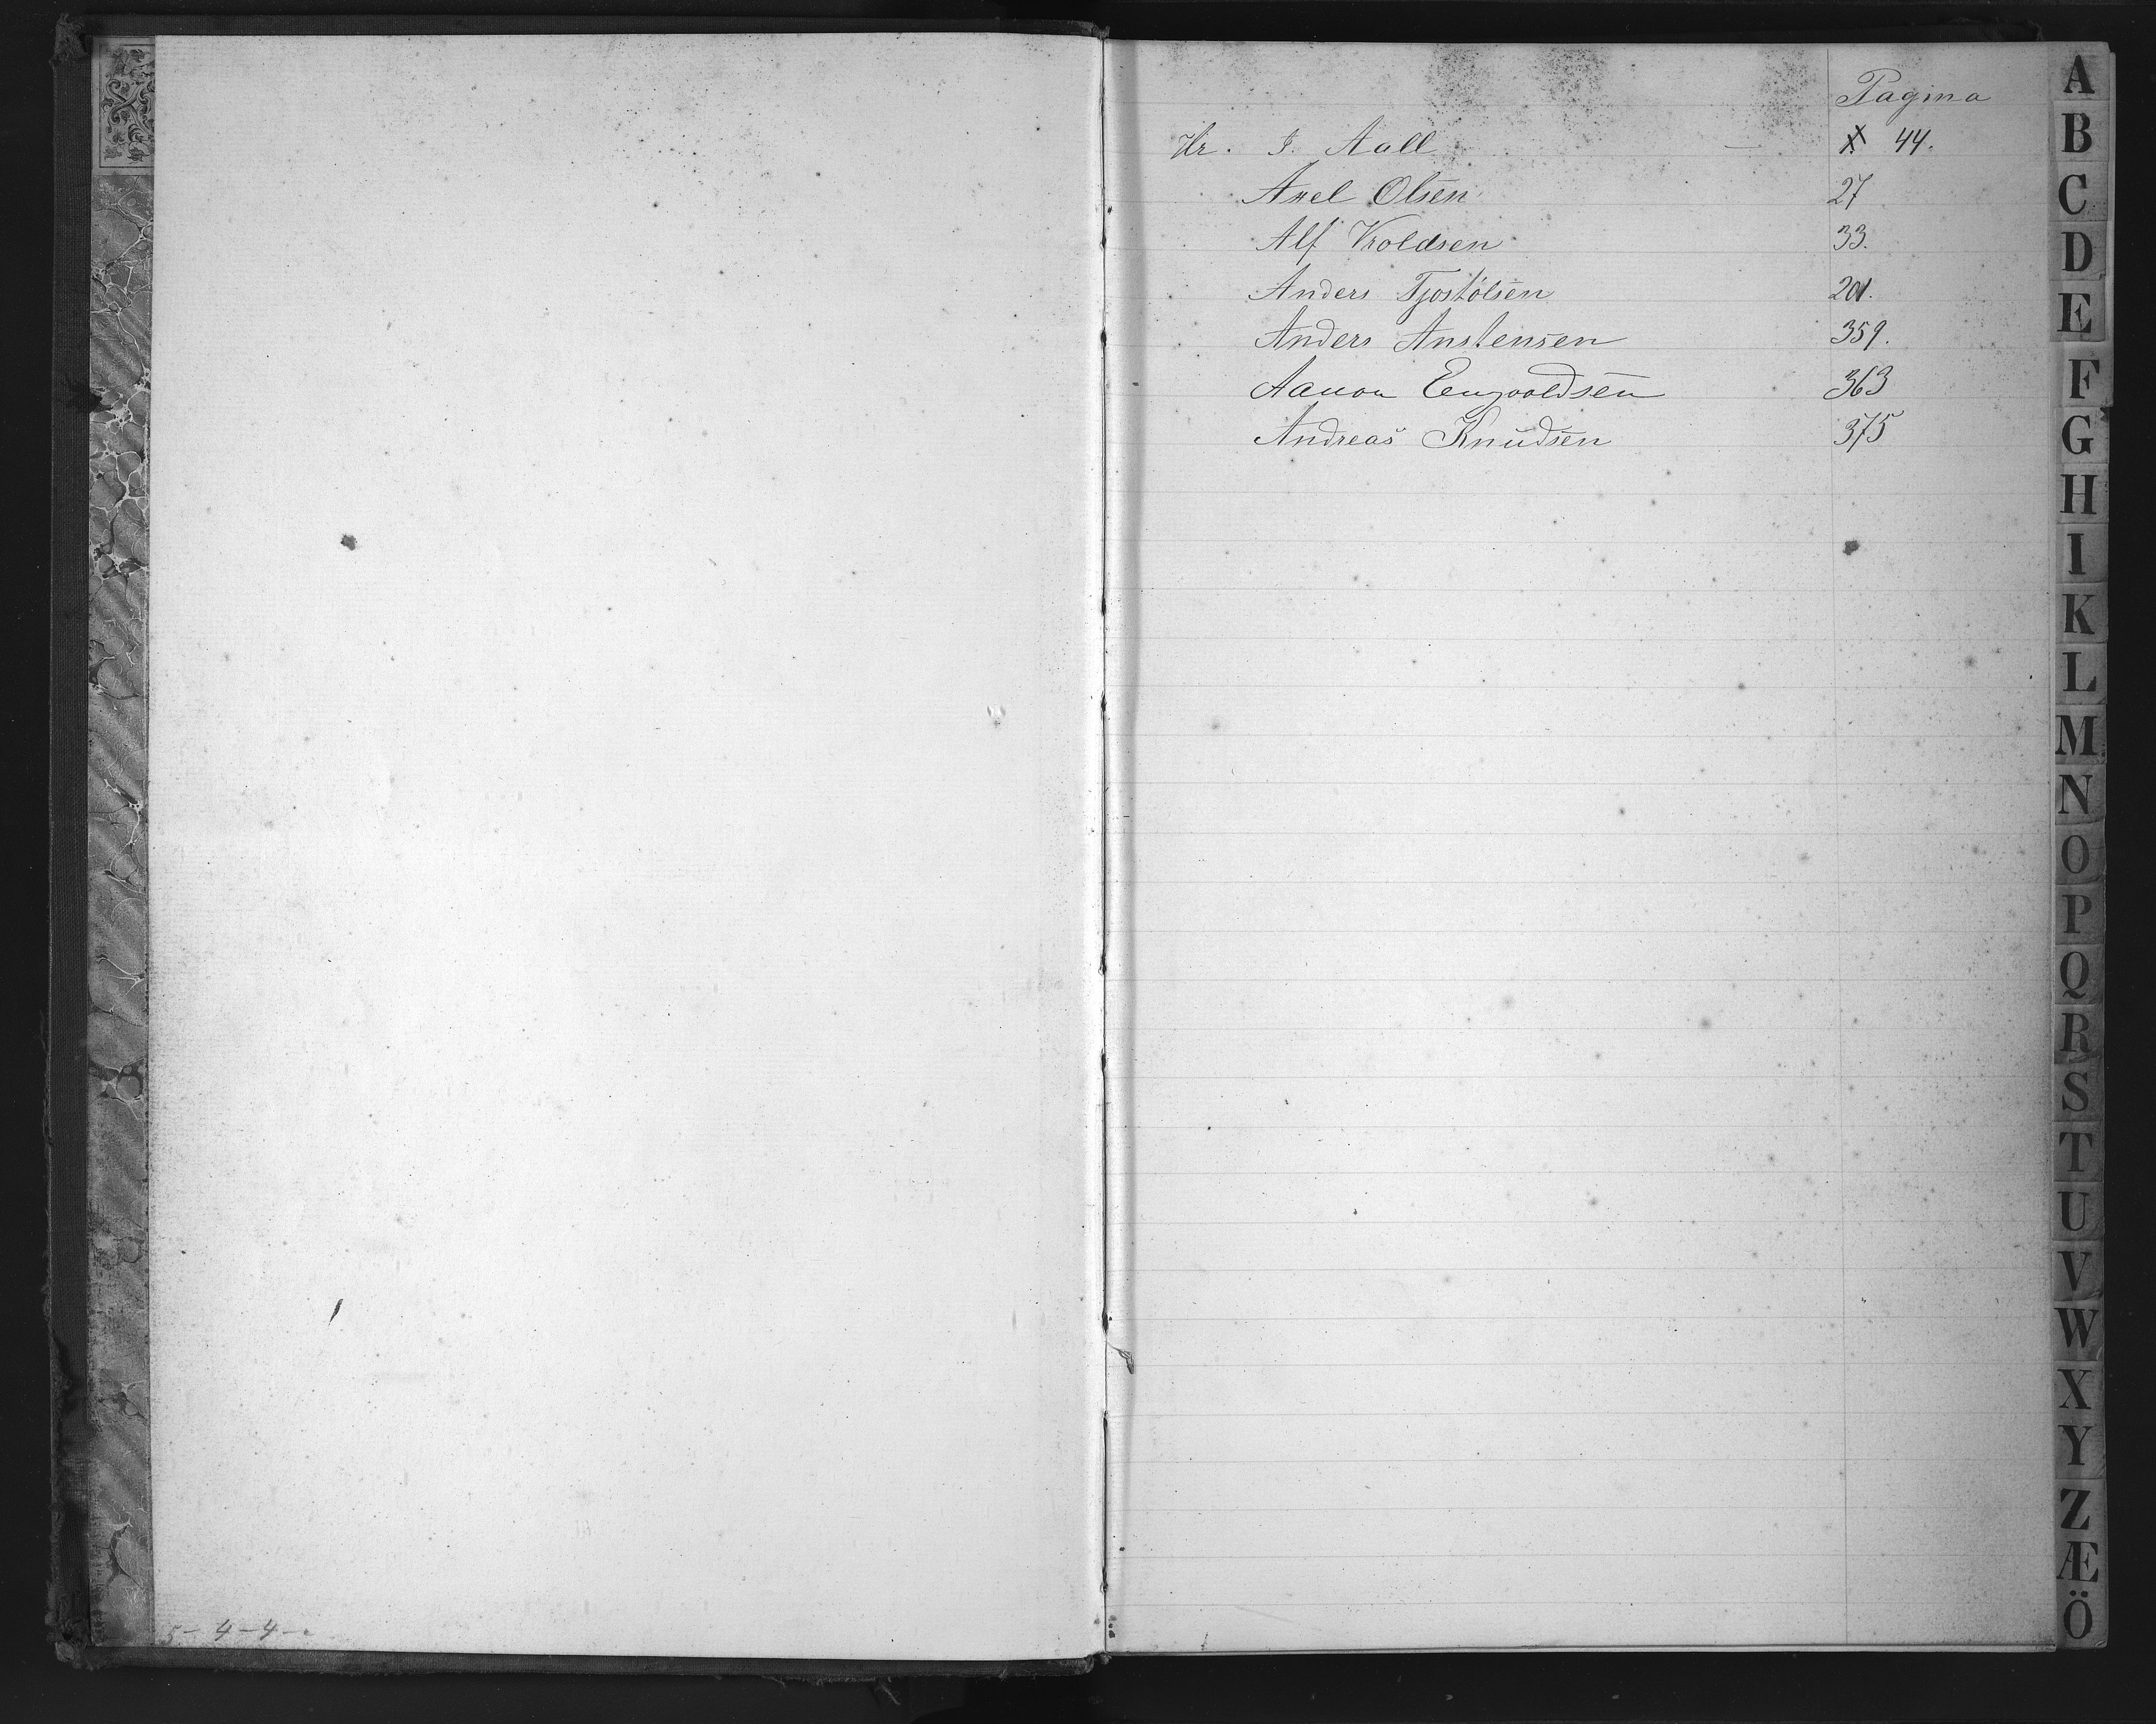 Pagina
Hr. J. Aall X 44.
Axel Olsen 27
Alf Kroldsen 33.
Anders Tjostölsen 201.
Anders Anstensen 359.
Aanon Engvoldsen 363
Andreas Knudsen 375
5-4-4-
A
B
C
D
E
F
G
H
I
K
L
M
N
O
P
Q
R
S
T
U
V
W
X
Y
Z
Æ
Ö